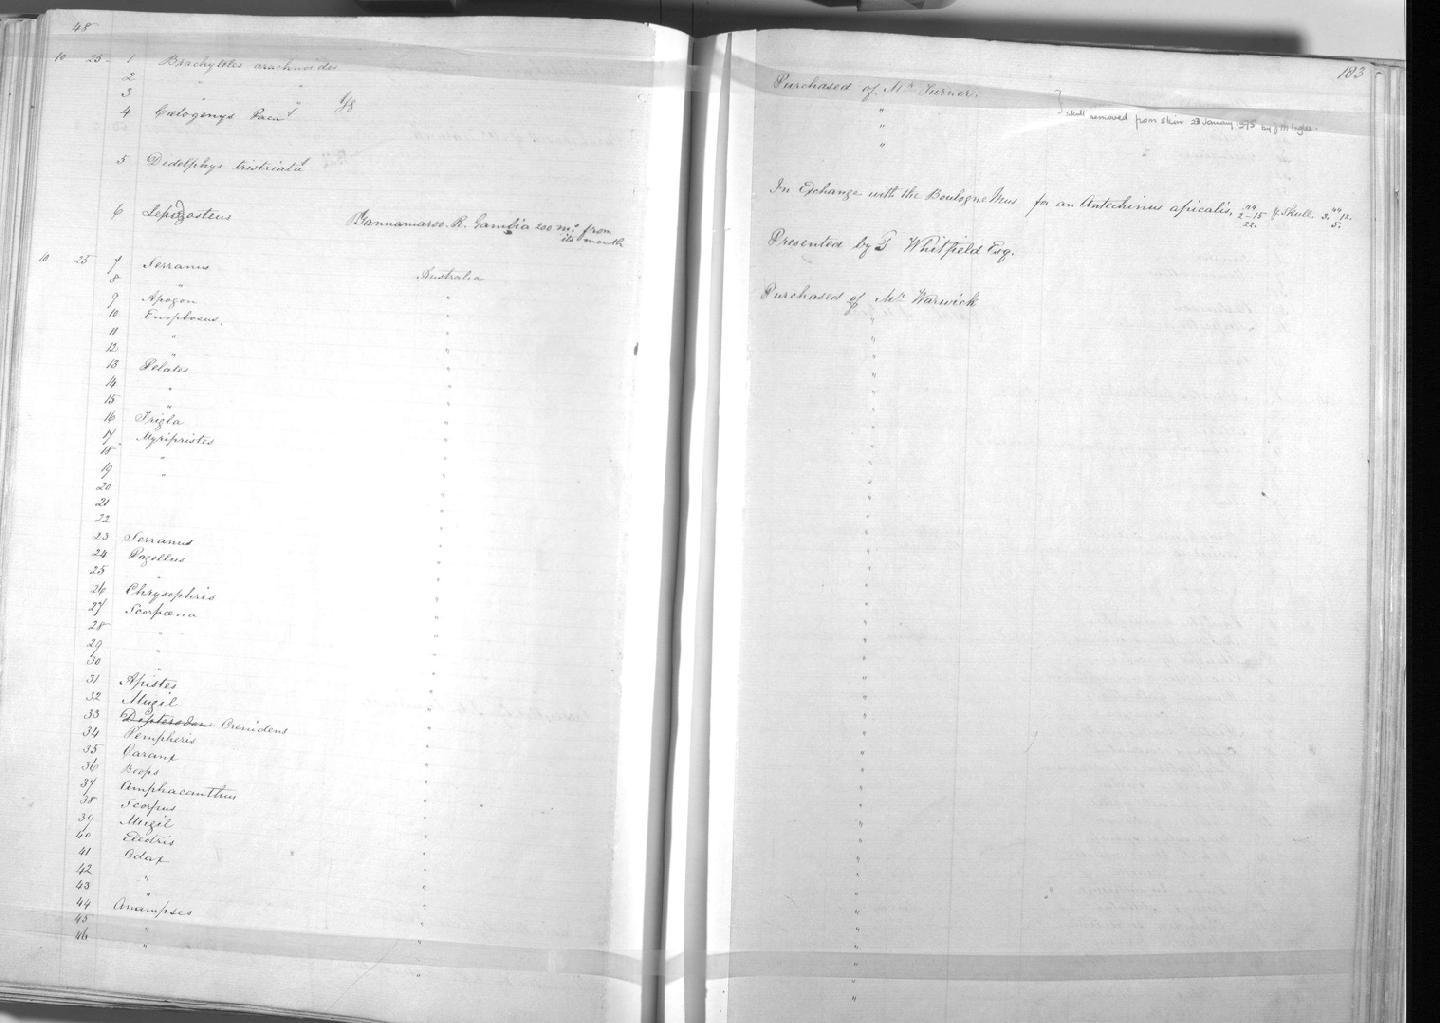 48
10 25 1 Brachyteles arachnoides
2 "
3 "
4 Cælogenys Paca
5 Didelphys tristriata
6 Lepidosteus R. Gambia 200 m.s from
its mouth
10 25 7 Serranus
8 " Australia
9 Apogon "
10 Enoplosus. "
11 " "
12 " "
13 Pelates "
14 " "
15 " "
16 Trigla "
17 Myripristes "
18 " "
19 " "
20 "
21 "
22 "
23 Serranus "
24 Pagellus "
25 " "
26 Chrysophris "
27 Scorpæna "
28 " "
29 "
30 "
31 Apistes "
32 Mugil "
33 Crenidens "
34 Pempheris "
35 Caranx "
36 Boops "
37 Amphacanthus "
38 Scorpus "
39 Mugil "
40 Eleotris "
41 Odax "
42 " "
43 " "
44 Anampses "
45 " "
46 " "
183
Purchased of Mr Turner.
" skull removed from skin 23 January 1975
"
"
In Exchange with the Boulogne Mus for an Antechinus apicalis, & Skull.
Presented by T Whitfield Esq.
Purchased of Mr Warwick